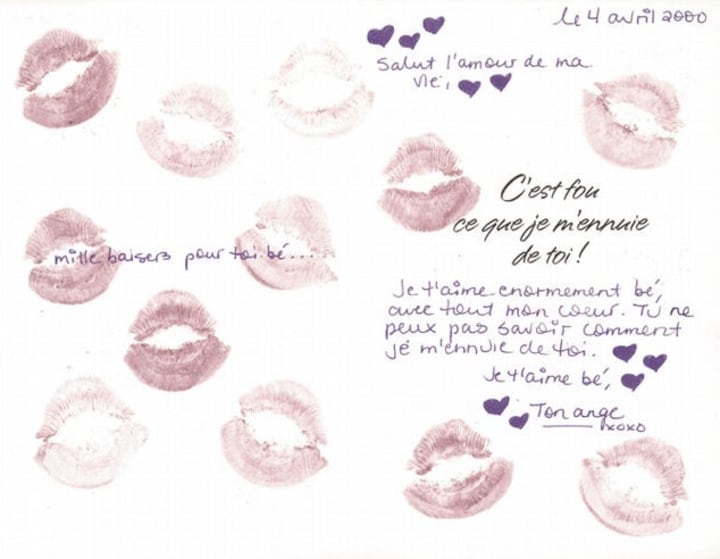 le 4 avril 2000
Salut l'amour de ma
vie,
C'est fou
ce que je m'ennuie
de toi !
mille baisers pour toi bé...
Je t'aime enormement bé,
avec tout mon coeur. Tu ne
peux pas savoir comment
je m'ennuie de toi.
Je t'aime bé,
Ton ange
xoxo